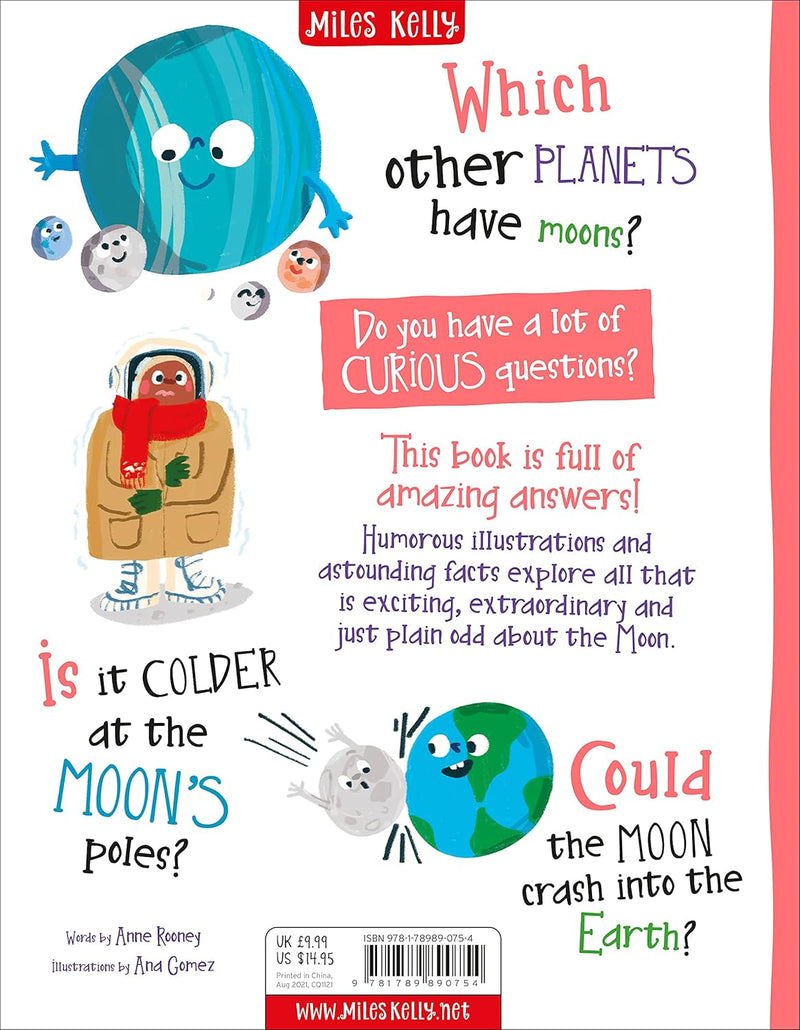 MILES KELLY
Which
other PLANETS
have moons?
Do you have a lot of
CURIOUS questions?
This book is full of
amazing answers!
Humorous illustrations and
astounding facts explore all that
is exciting, extraordinary and
just plain odd about the Moon.
Is it COLDER
at the
MOON'S
poles?
Could
the MOON
crash into the
Earth?
Words by Anne Rooney
Illustrations by Ana Gomez
UK £9.99
US $14.95
Printed in China,
Aug 2021, CQ1121
ISBN 978-1-78989-075-4
9 781789 890754
www.MilesKelly.net